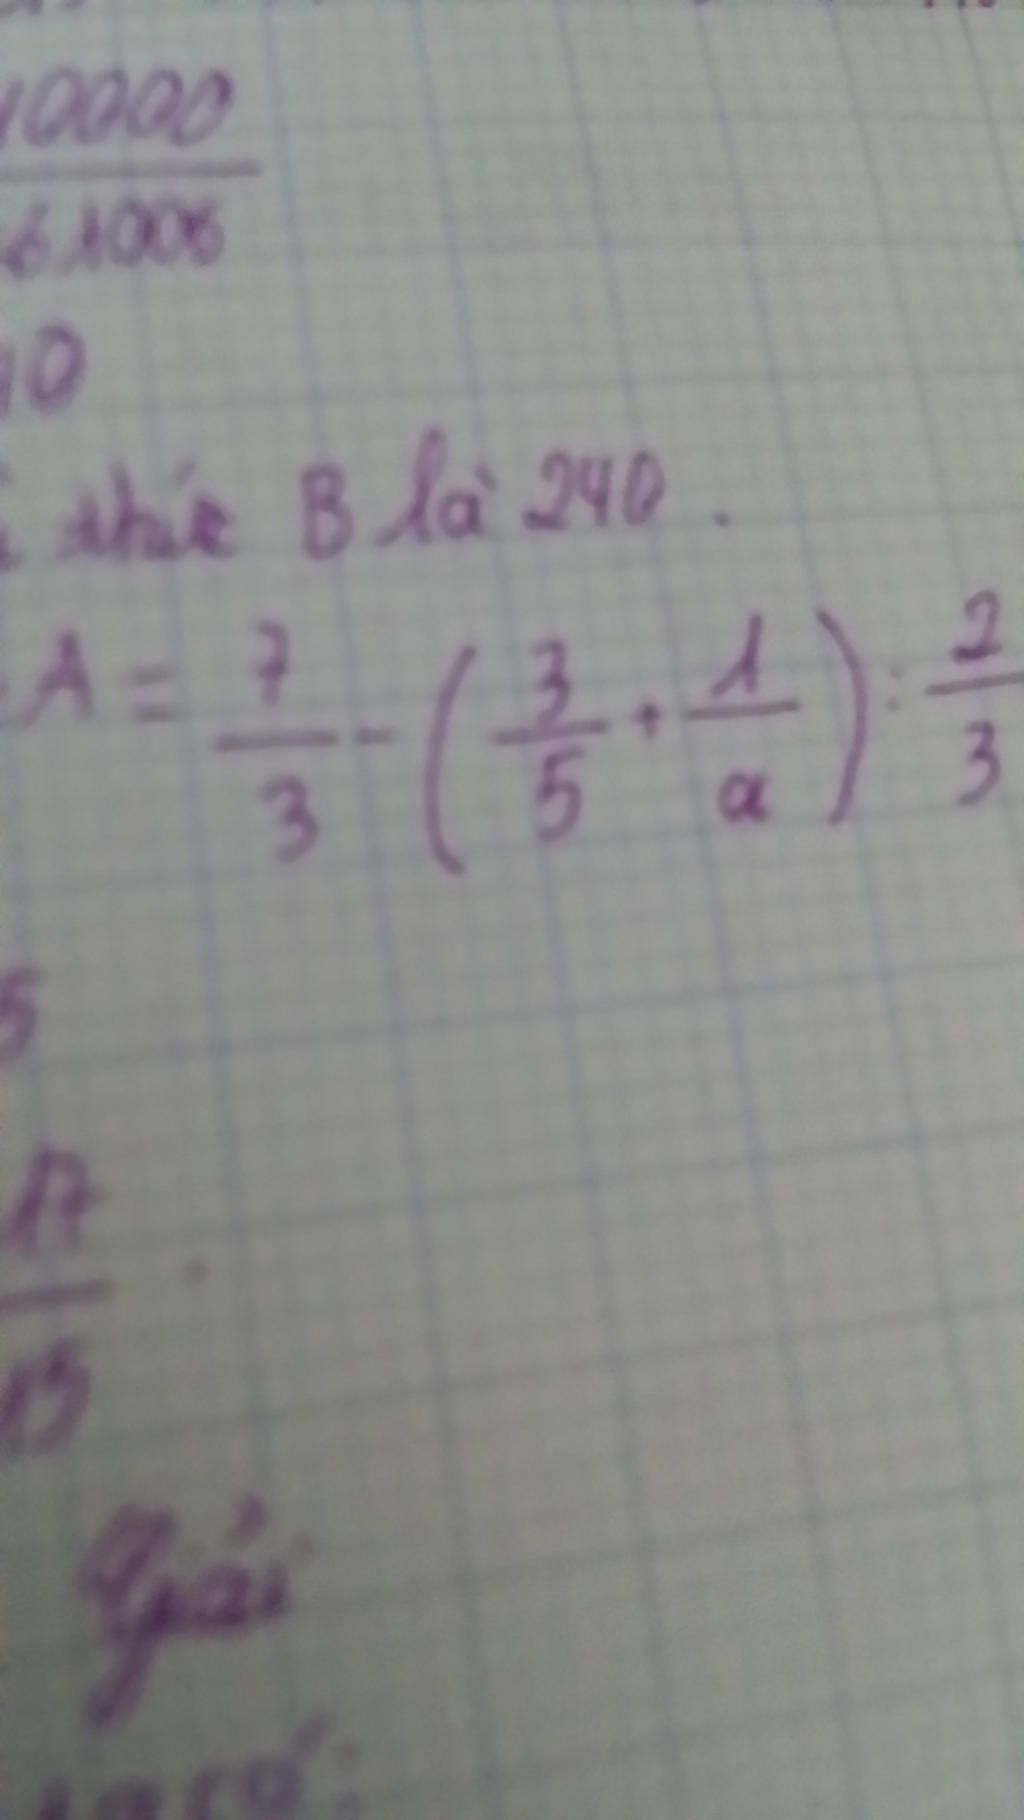 10000
61006
10
thức B là 240.
A = 7/3 - (3/5 + 1/a) : 2/3
5
17
15
Giải